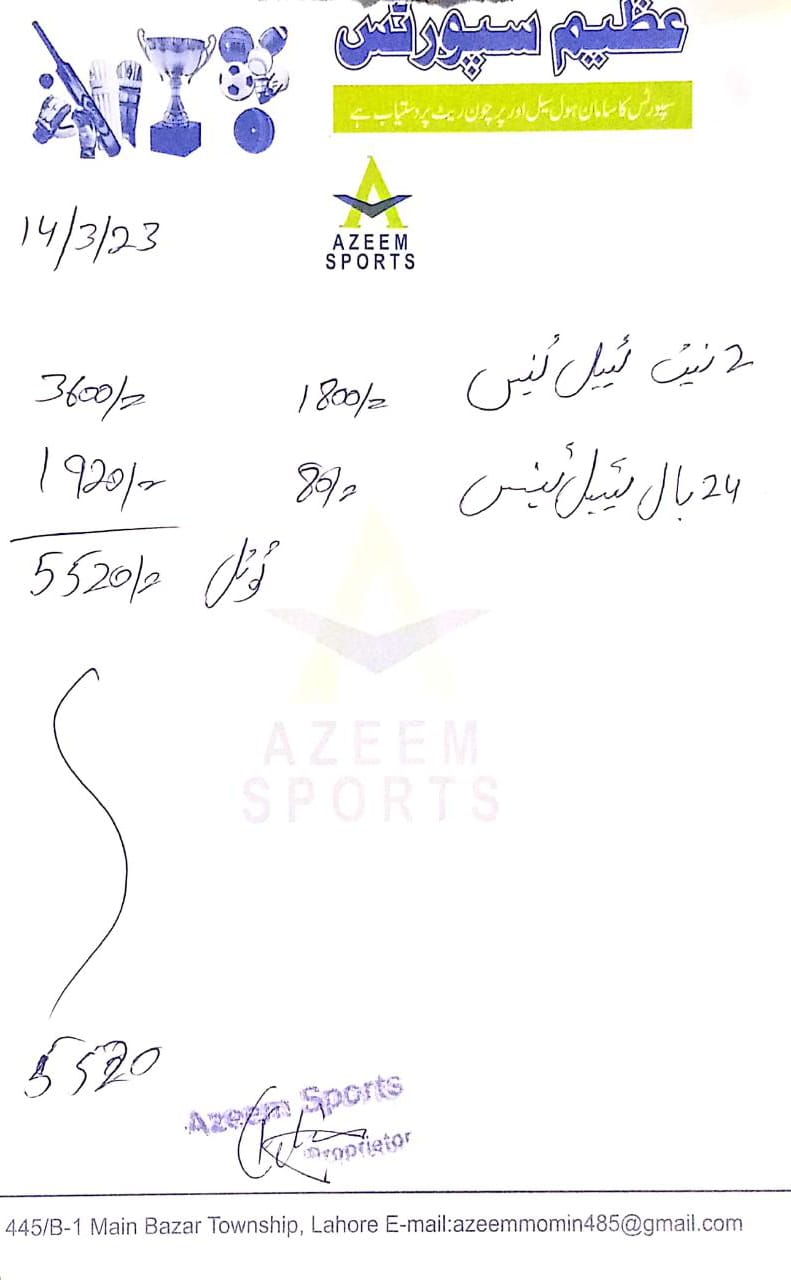 عظیم سپورٹس
سپورٹس کا سامان ہول سیل اور پرچون ریٹ پر دستیاب ہے
AZEEM
SPORTS
14/3/23
2 نیٹ ٹیبل ٹینس 1800/= 3600/=
24 بال ٹیبل ٹینس 80/= 1920/=
ٹوٹل 5520/=
AZEEM
SPORTS
5520
Azeem Sports
Proprietor
445/B-1 Main Bazar Township, Lahore E-mail:azeemmomin485@gmail.com